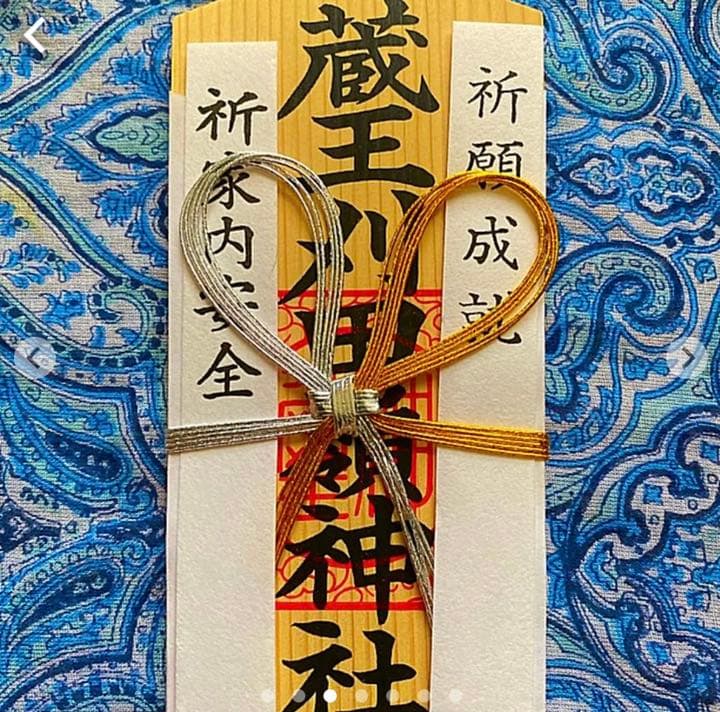 祈願成就
蔵王刈田嶺神社
祈家内安全